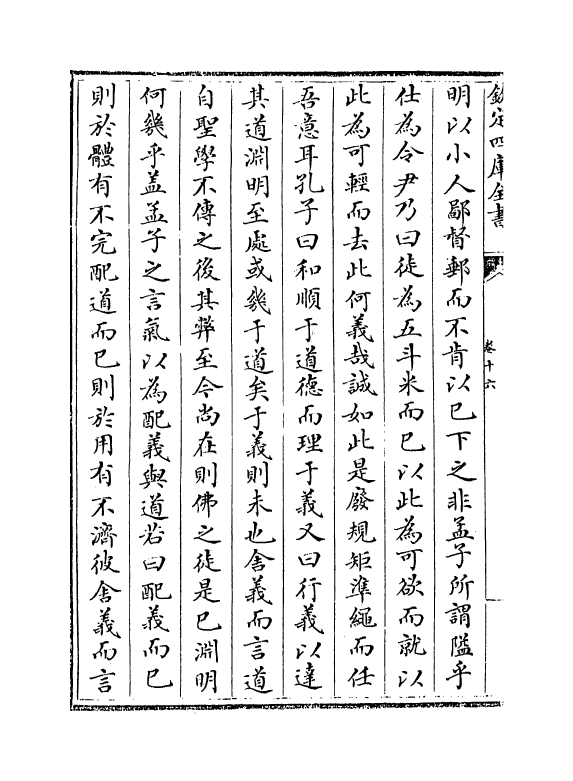 欽定四庫全書
卷十六
明以小人鄙督郵而不肯以已下之非孟子所謂隘乎
仕為令尹乃曰徒為五斗米而已以此為可欲而就以
此為可輕而去此何義哉誠如此是廢規矩準繩而任
吾意耳孔子曰和順于道德而理于義又曰行義以達
其道淵明至處或幾于道矣于義則未也舍義而言道
自聖學不傳之後其弊至今尚在則佛之徒是已淵明
何幾乎盖孟子之言氣以為配義與道若曰配義而已
則於體有不完配道而已則於用有不濟彼舍義而言